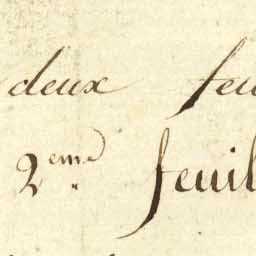 deux feu
2eme. feuil